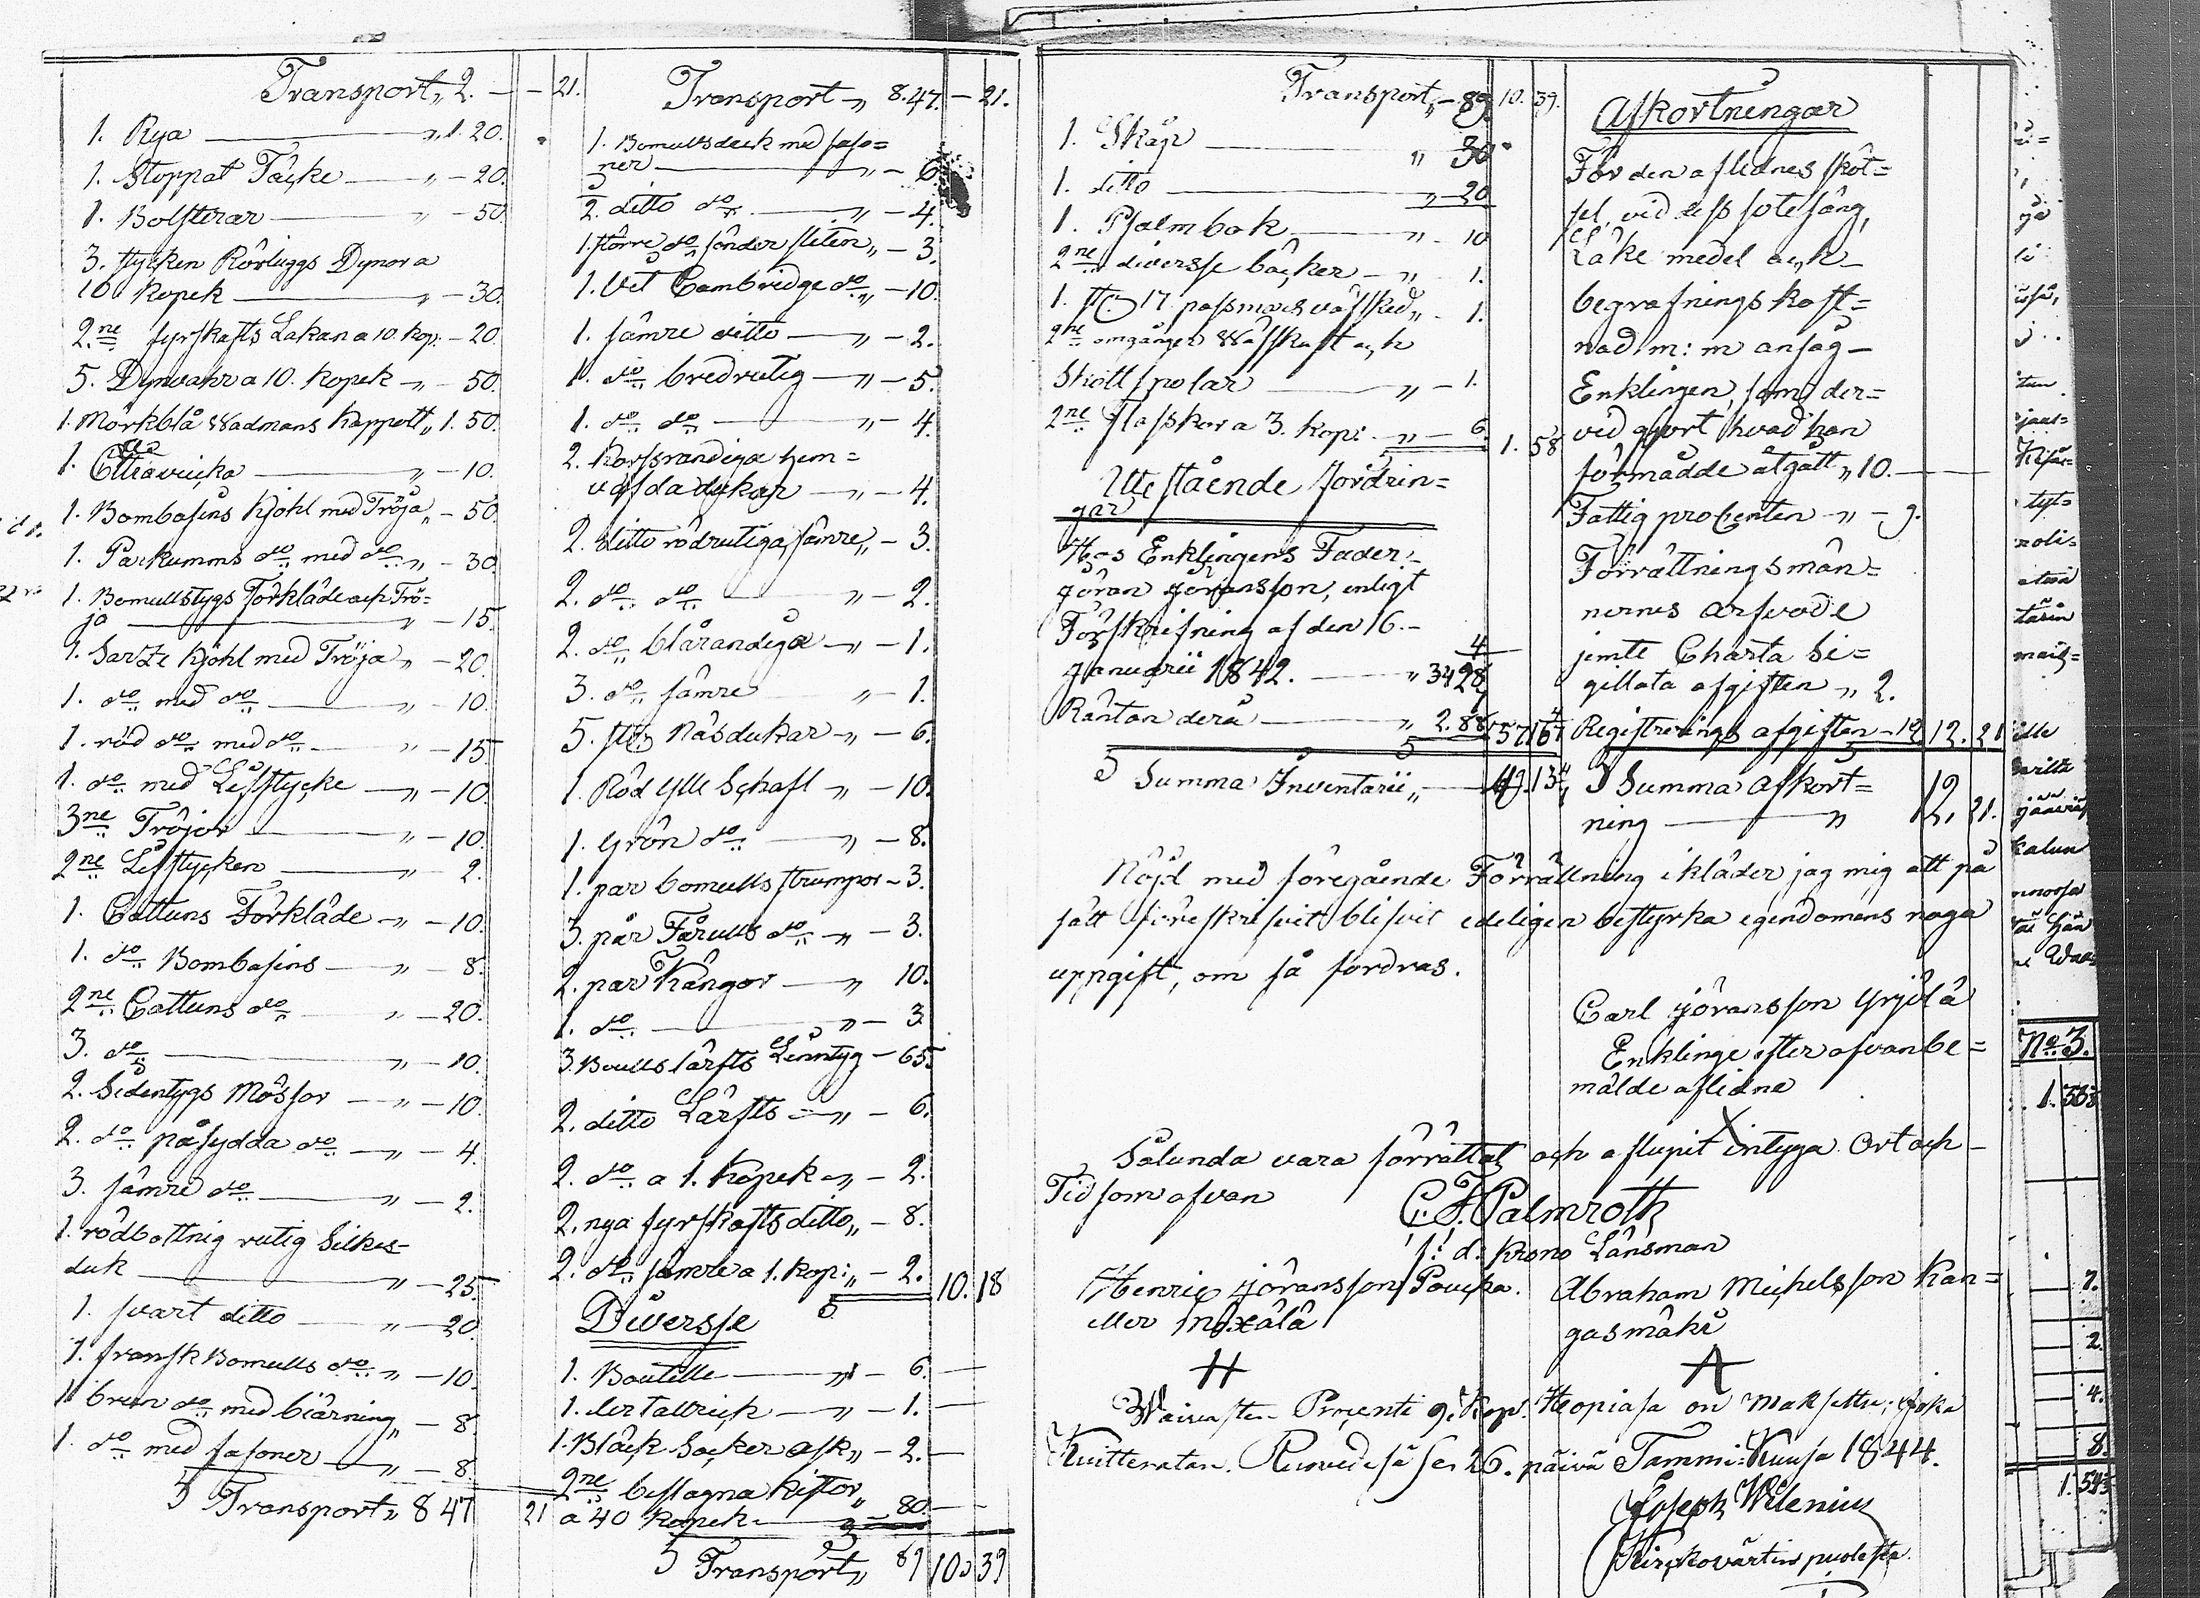 Transport „ 2. — — 21.
1. Rya — „ 1. 20.
1. Stoppat Täcke — „ — 20.
1. Bolsterar — „ — 50.
3. stycken Rörluggs Dynor a
10 kopek — „ — 30.
2ne fyrskafts Lakan a 10. kop. — 20.
5. Dynvahr a 10. kopek „ — 50.
1. Mörkblå Wadmans Kappott „ 1. 50.
1. — „ — 10.
1. Bombasins Kjohl med Tröja „ — 50.
1. Parkumms do med do „ — 30.
1. Bomullstygs Förkläde och Trö=
ja — „ — 15.
1. Sarze Kjohl med Tröja „ — 20.
1. do med do — „ — 10.
1. röd do med do — „ — 15
1. do med Lifstycke — „ — 10.
3ne Tröjor — „ — 10.
2ne Lifstycken — „ — 2.
1. Cattuns Förkläde — „ — 10.
1. do Bombasins — „ — 8.
2ne Cattuns do — „ — 20.
3. do — „ — 10.
2. Sidentygs Mössor — „ — 10.
2. do påsydda do — „ — 4.
3. sämre do — „ — 2.
1. rödbottnig rutig Silkes=
duk — „ — 25.
1. svart ditto — „ — 20.
1. fransk Bomulls do „ — 10.
1 brun do med bärning „ — 8.
1. do med fasoner — „ — 8.
Transport „ 8 47 21
Transport „ 8. 47. — 21.
1. Bomullsduk med faso=
ner — „ — 6.
2. ditto do — „ — 4.
1. större do sönder sleten „ — 3.
1. Vit Cambridge do „ — 10.
1. sämre ditto — „ — 2.
1. do bredrutig — „ — 5.
1. do do — „ — 4.
2. Korsrandiga hem=
väfda dukar — „ — 4.
2. ditto rödrutiga, sämre „ — 3.
2. do do — „ — 2.
2. do blårandiga — „ — 1.
3. do sämre — „ — 1.
5. st. Näsdukar — „ — 6.
1. Röd Ylle Schalf — „ — 10.
1. Grön do — „ — 8.
1. par bomulls strumpor — 3.
3. pår Fårulls do — „ — 3.
2. par Kängor — „ 10.
1. do — „ — 3.
3. Boulls lärfts Linntyg — 65.
2. ditto Lärfts — „ — 6.
2. do a 1. Kopek — „ — 2.
2. nya fyrskafts ditto „ — 8.
2. do sämre a 1. kop: „ — 2. 10. 18
Diversse
1. Boutelle — „ — 6. —
1. Ler Tallrick — „ — 1. —
1. Bläck Socker ask „ — 2. —
2ne beslagna Kistor „
a 40 kopek — 80. —
Transport „ 89 10 39
Transport „ — 89. 10. 39.
1. Skåp — „ 30
1. ditto — „ — 20
1. Psalmbok — „ — 10
2ne diversse böcker — „ — 1.
1. st. 17. pasmars väfsked „ — 1.
2ne omgånger Wäfskaft och
Skottspolar — „ — 1.
2ne flasskor a 3. kop: — „ — 6. 1. 58
Utestående fordrin=
gar
Hos Enklingens Fader
Jöran Göransson, enligt
Förskrifning af den 16.
Januarii 1842. — „ 34 28
Räntan derå — „ 2. 88 37. 16
Summa Inventarii „ 49. 13
Afkortningar
För den aflidnes sköt=
sel, vid dess sotesäng,
Läke medel och
begrafnings kost=
nad m: m ansåg
Enklingen, som der=
vid gjort hvad han
förmådde åtgått „ 10. —
Fattig procenten — „ — 9.
Förrättningsmän=
nernes arfvode
jemte Charta Si=
gillata afgiften „ 2.
Registrerings afgiften — 12. 12. 21
Summa afkort=
ning — „ 12. 21.
Nöjd med föregående Förrättning ikläder jag mig att på
sätt föreskrifvit blifvit edeligen bestyrka egendomens noga
uppgift, om så fordras.
Carl Göransson Yrjölä
Enklinge efter ofvanbe=
mälde aflidna
Sålunda vara förrättat och aflupit intyga. Ort och
Tid som ofvan
C. F. Palmroth
f. d. Krono Länsman
Henric Jöransson
eller
H
Abraham Michelsson Kan=
gasmäki
A
Waivasten Procenti 9. Kop. Hopiasa on Maksettu; joka
Kuittenatan. Ruovedesä se 26. päivä Tammi-Kuusa 1844.
Joseph Wilenius
Kirckovärtin puolesta.
No 3.
7.
2.
4.
8.